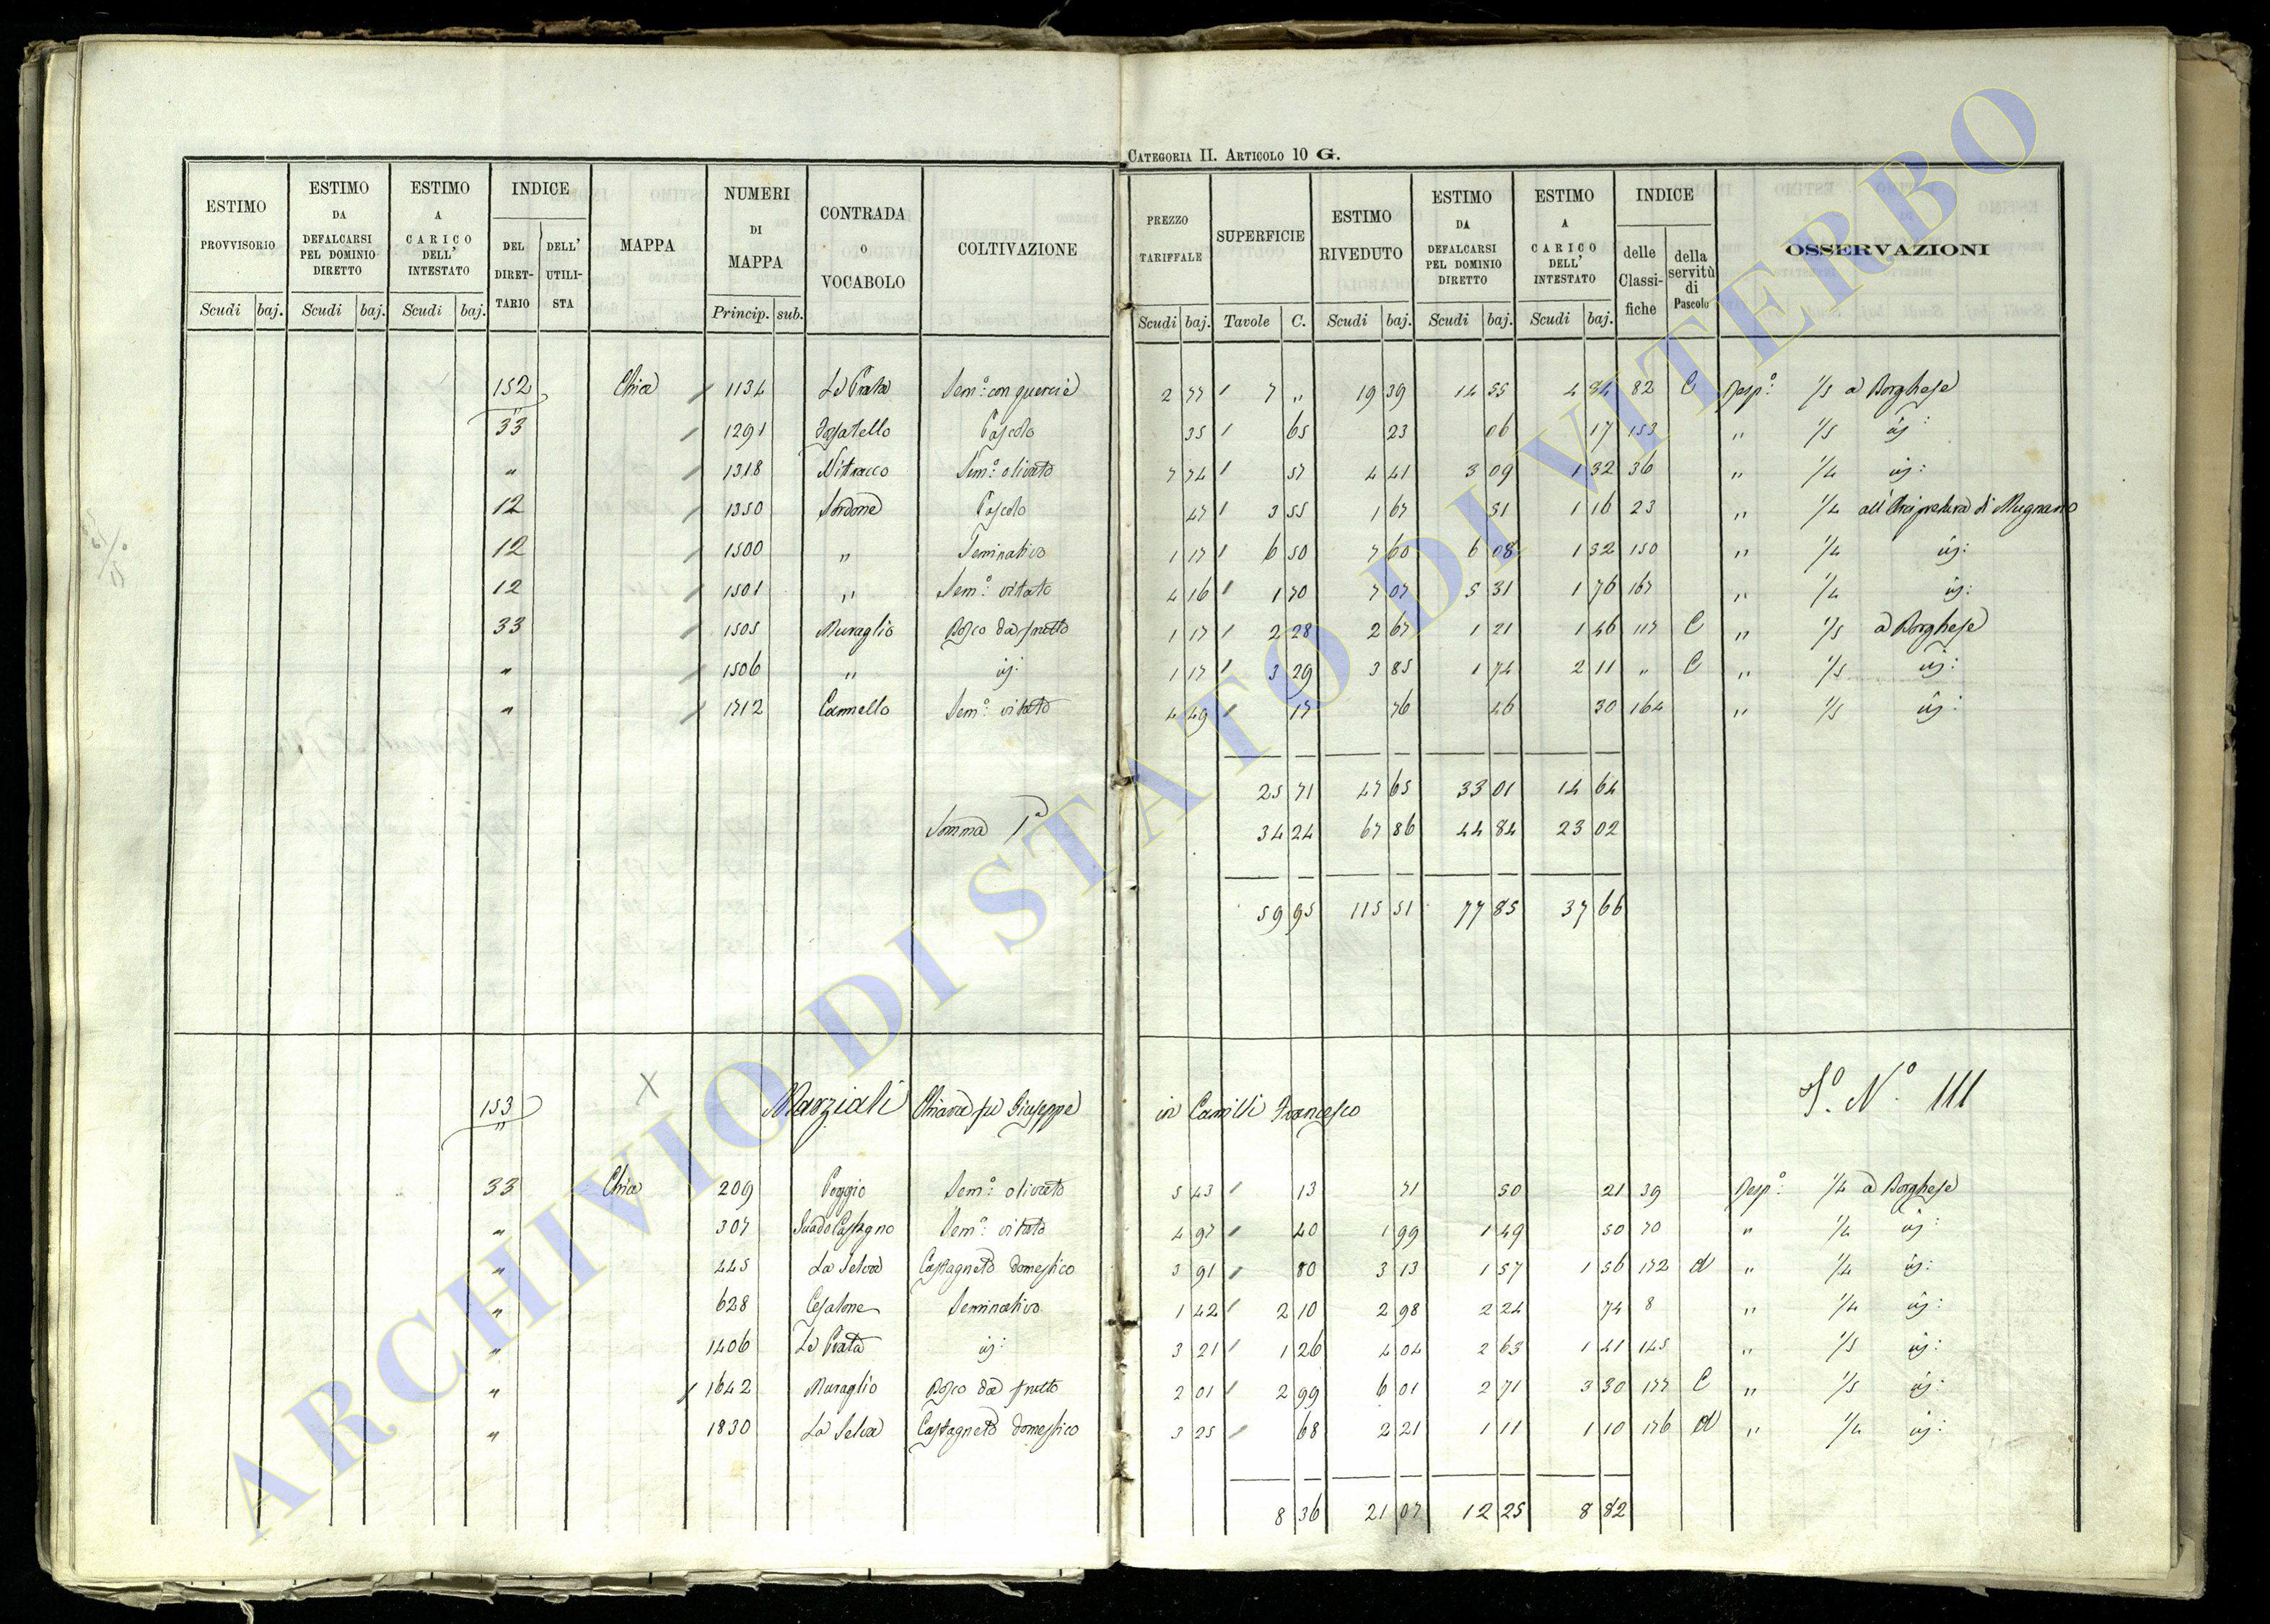 CATEGORIA II. ARTICOLO 10 G.
ESTIMO PROVVISORIO ESTIMO DA DEFALCARSI PEL DOMINIO DIRETTO ESTIMO A CARICO DELL' INTESTATO INDICE DEL DIRETTARIO DELL' UTILISTA MAPPA NUMERI DI MAPPA CONTRADA O VOCABOLO COLTIVAZIONE PREZZO TARIFFALE SUPERFICIE ESTIMO RIVEDUTO ESTIMO DA DEFALCARSI PEL DOMINIO DIRETTO ESTIMO A CARICO DELL' INTESTATO INDICE delle Classifiche della servitù di Pascolo OSSERVAZIONI
Scudi baj. Scudi baj. Scudi baj. Princip. sub. Scudi baj. Tavole C. Scudi baj. Scudi baj. Scudi baj.
152 Chia 1134 Le Prata Sem.º con quercie 2 77 7 " 19 39 14 55 4 84 82 C Resp.º 1/5 a Borghese
33 1291 Fossatello Pascolo 35 65 23 06 17 153 " 1/5 id:
" 1318 Sem.º olivato 7 74 57 4 41 3 09 1 32 36 " 1/4 id:
12 1350 Sordone Pascolo 47 3 55 1 67 51 1 16 23 " 1/4 all'Arcipretura di Mugnano
12 1500 " Seminativo 1 17 6 50 7 60 6 08 1 52 150 " 1/4 id:
12 1501 " Sem.º vitato 4 16 1 70 7 07 5 31 1 76 167 " 1/4 id:
33 1505 Muraglio Bosco da frutto 1 17 2 28 2 67 1 21 1 46 117 C " 1/5 a Borghese
" 1506 " id: 1 17 3 29 3 85 1 74 2 11 " C " 1/5 id:
" 1712 Cannello Sem.º vitato 4 49 17 76 46 30 164 " 1/5 id:
25 71 47 65 33 01 14 64
Somma 1ª 34 24 67 86 44 84 23 02
59 95 115 51 77 85 37 66
153 Marziali Chiara fu Giuseppe in Camilli Francesco S.º N.º 111
33 Chia 209 Poggio Sem.º olivato 5 43 13 71 50 21 39 Resp.º 1/4 a Borghese
" 307 Sem.º vitato 4 97 40 1 99 1 49 50 70 " 1/4 id:
" 445 La Selva Castagneto domestico 3 91 80 3 13 1 57 1 56 172 d " 1/4 id:
" 628 Cesalone Seminativo 1 42 2 10 2 98 2 24 74 8 " 1/4 id:
" 1406 Le Prata id: 3 21 1 26 4 04 2 63 1 41 145 " 1/5 id:
" 1642 Muraglio Bosco da frutto 2 01 2 99 6 01 2 71 3 30 177 C " 1/5 id:
" 1830 La Selva Castagneto domestico 3 25 68 2 21 1 11 1 10 176 d " 1/4 id:
8 36 21 07 12 25 8 82
ARCHIVIO DI STATO DI VITERBO